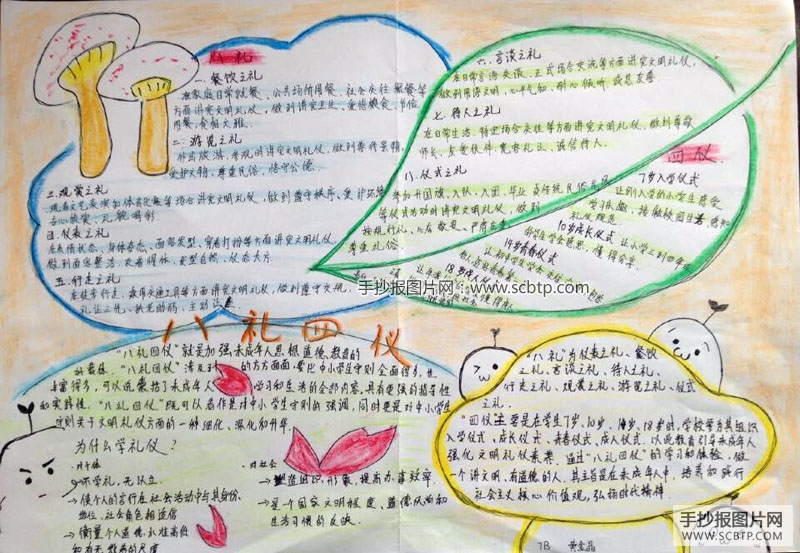 八礼
一.餐饮之礼
在家庭日常就餐、公共场所用餐、社会交往聚餐等
方面讲究文明礼仪,做到讲究卫生、爱惜粮食、节俭
用餐、食相大雅.
二.游览之礼
做到善待景观、
爱护文物、尊重民俗、恪守公德.
三.观赏之礼
做到遵守秩序、爱护环境
专心欣赏、礼貌喝彩
四.仪表之礼
在衣情状态、身体姿态、面容发型、穿着打扮等方面讲究文明礼仪
做到面容整洁、衣着得体、发型自然、仪态大方
五.行走之礼
在徒步行走、乘用交通工具等方面讲究文明礼仪,做到遵守交规、
礼让三先、扶老助弱、主动让座
六.言谈之礼
在日常言语交流、正式场合交流等方面讲究文明礼仪,
做到用语文明、心平气和、耐心倾听、诚恳友善.
七.待人之礼
在日常生活、特定场合交往等方面讲究文明礼仪,做到尊敬
师长、友爱伙伴、宽容礼让、诚信待人.
八.仪式之礼
参加升国旗、入队、入团、毕业
等仪式活动时讲究文明礼仪,做到
按规行礼、心存敬畏、严肃庄重、
尊重礼俗.
四仪
7岁入学仪式
让刚入学的小学生感受
学习乐趣,接触校园生活,感知
礼仪规范.
10岁成长仪式
让小学三到四年级
的学生学会感恩、懂得分享.
14岁青春仪式
18岁成人仪式
手抄报图片网:www.scbtp.com
八礼四仪
"八礼四仪"就是加强未成年人思想道德教育的
的方方面面,要比中小学生守则全面得多,也
丰富得多,可以说囊括了未成年人学习和生活的全部内容,具有更强的指导性
和实践性.“八礼四仪”既可以看作是对中小学生守则的强调,同时更是对中小学生
守则关于文明礼仪方面的一种细化、深化和升华.
为什么学礼仪?
·对个体
→不学礼,无以立
→使个人的言行在社会活动中与其身份、
地位、社会角色相适应
→衡量个人道德水准高低
和有无教养的尺度
·对社会
→塑造组织形象,提高办事效率
→是一个国家文明程度、道德风尚和
生活习惯的反映.
“八礼”为仪表之礼、餐饮
之礼、言谈之礼、待人之礼、
行走之礼、观赏之礼、游览之礼、仪式
之礼.
“四仪”主要是在学生7岁、10岁、14岁、18岁时,学校等为其组织
入学仪式、成长仪式、青春仪式、成人仪式,以此教育引导未成年人
强化文明礼仪素养,通过“八礼四仪”的学习和体验,做
一个讲文明、有道德的人,其主旨是在未成年人中,培养和践行
社会主义核心价值观,弘扬时代精神.
7B
手抄报图片网
WWW.SCBTP.COM